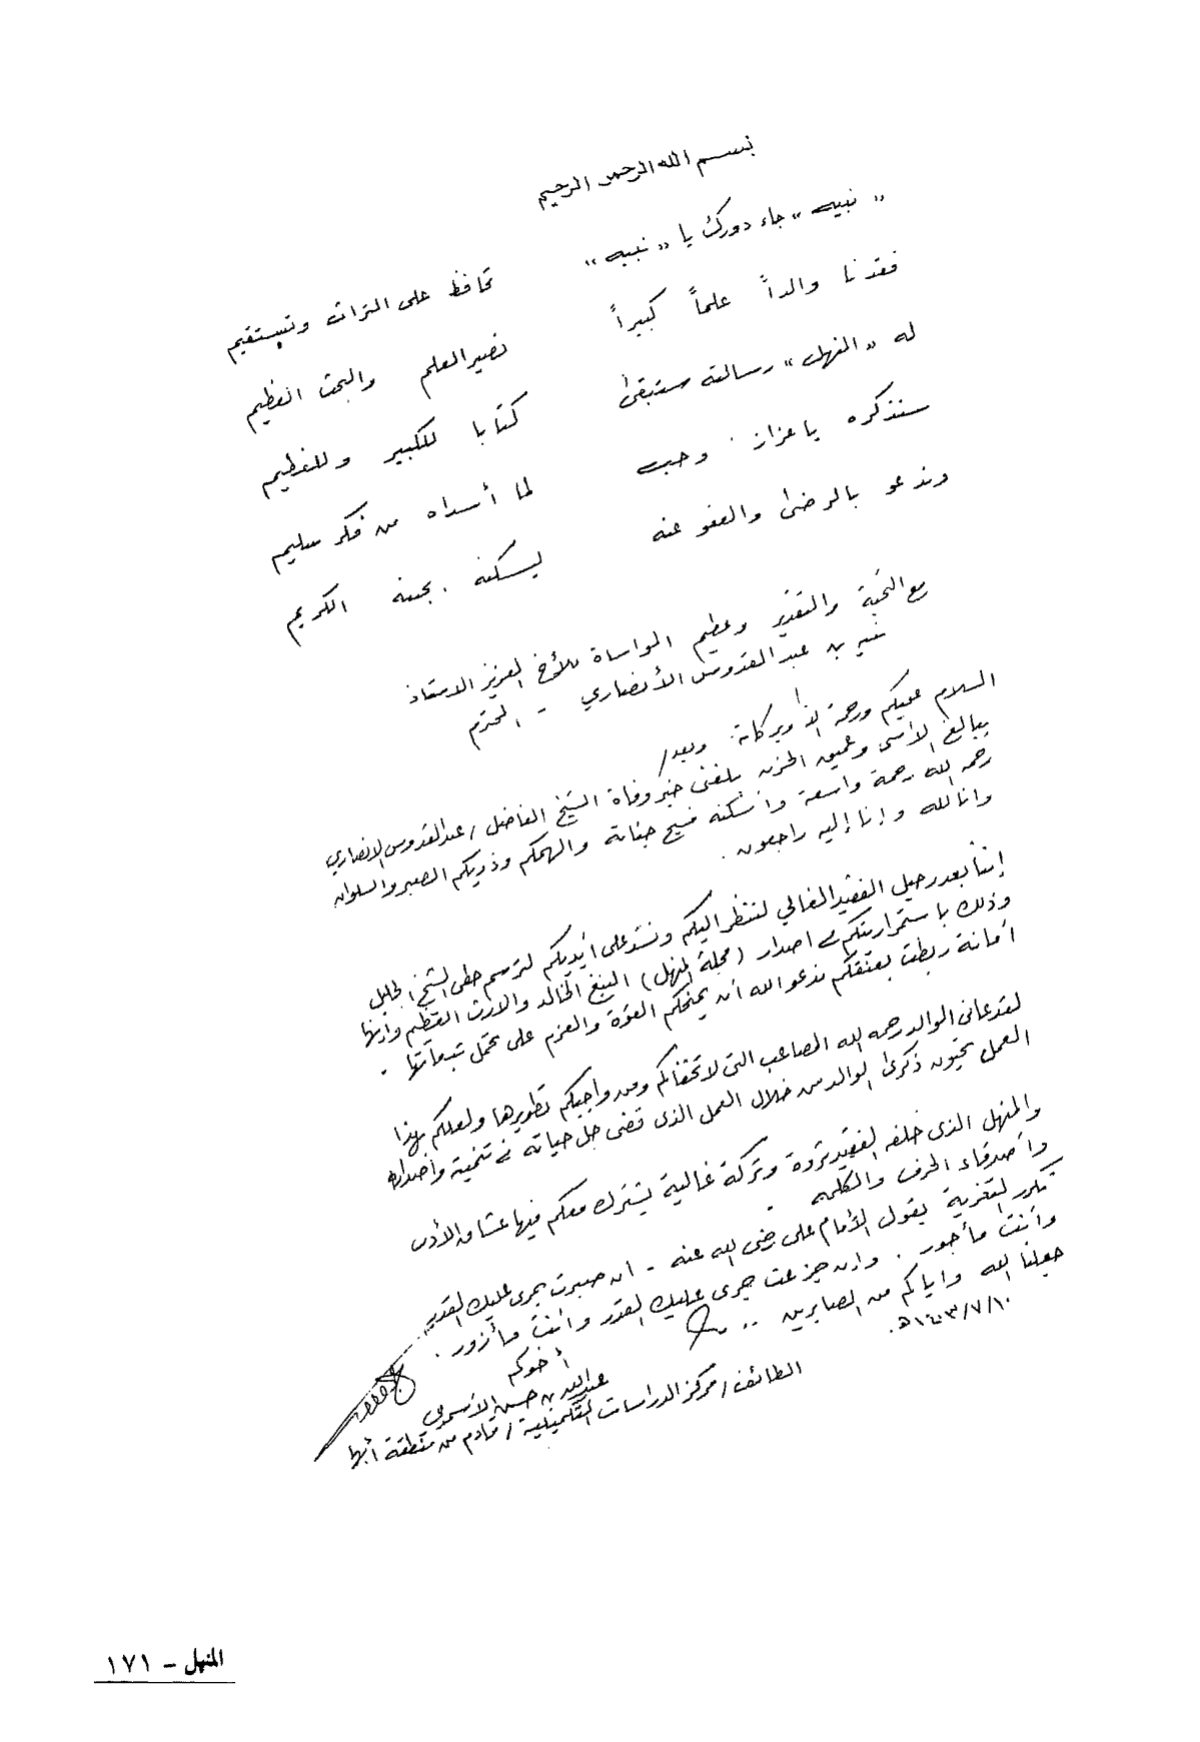 بسم الله الرحمن الرحيم
« نبيه » جاء دورك يا « نبيه » تحافظ على التراث وتستقيم
فقدنا والداً علماً كبيراً نصير العلم والبحث العظيم
له « المنهل » رسالته ستبقى كتابا للكبير وللفطيم
سنذكره باعزاز وحب لما أسداه من فكر سليم
وندعو بالرضى والعفو عنه ليسكنه بجنته الكريم
مع التحية والتقدير وعظيم المواساة للأخ العزيز الاستاذ
بن عبدالقدوس الأنصاري - المحترم
السلام عليكم ورحمة الله وبركاته وبعد/
ببالغ الأسى وعميق الحزن بلغني خبر وفاة الشيخ الفاضل / عبدالقدوس الانصاري
رحمه الله رحمة واسعة واسكنه فسيح جناته والهمكم وذويكم الصبر والسلوان
وانا لله وإنا إليه راجعون .
إننا بعد رحيل الفقيد الغالي لننظر اليكم ونشد على أيديكم لترسم خطى الشيخ الجليل
وذلك باستمراريتكم في اصدار (مجلة المنهل) النبع الخالد والارث العظيم وانها
أمانة ربطت بعنقكم ندعو الله أن يمنحكم القوة والعزم على تحمل تبعاتها .
لقد عانى الوالد رحمه الله المصاعب التي لا تخفاكم ومن واجبكم تطويرها ولعلكم بهذا
العمل تحيون ذكرى الوالد من خلال العمل الذي قضى جل حياته في تنميته واصداره
والمنهل الذي خلفه الفقيد ثروة وتركة غالية يشترك معكم فيها عشاق الأدب
وأصدقاء الحرف والكلمه .
نكرر التعزية بقول الأمام علي رضي الله عنه - ان صبرت جرى عليك القدر
وأنت مأجور . وان جزعت جرى عليك القدر وأنت مأزور .
جعلنا الله واياكم من الصابرين ..
١٤٠٣/٧/١٠هـ.
أخوكم
عبدالله بن حسن الأسمري
الطائف / مركز الدراسات التكميلية / قادم من منطقة أبها
المنهل - ١٧١